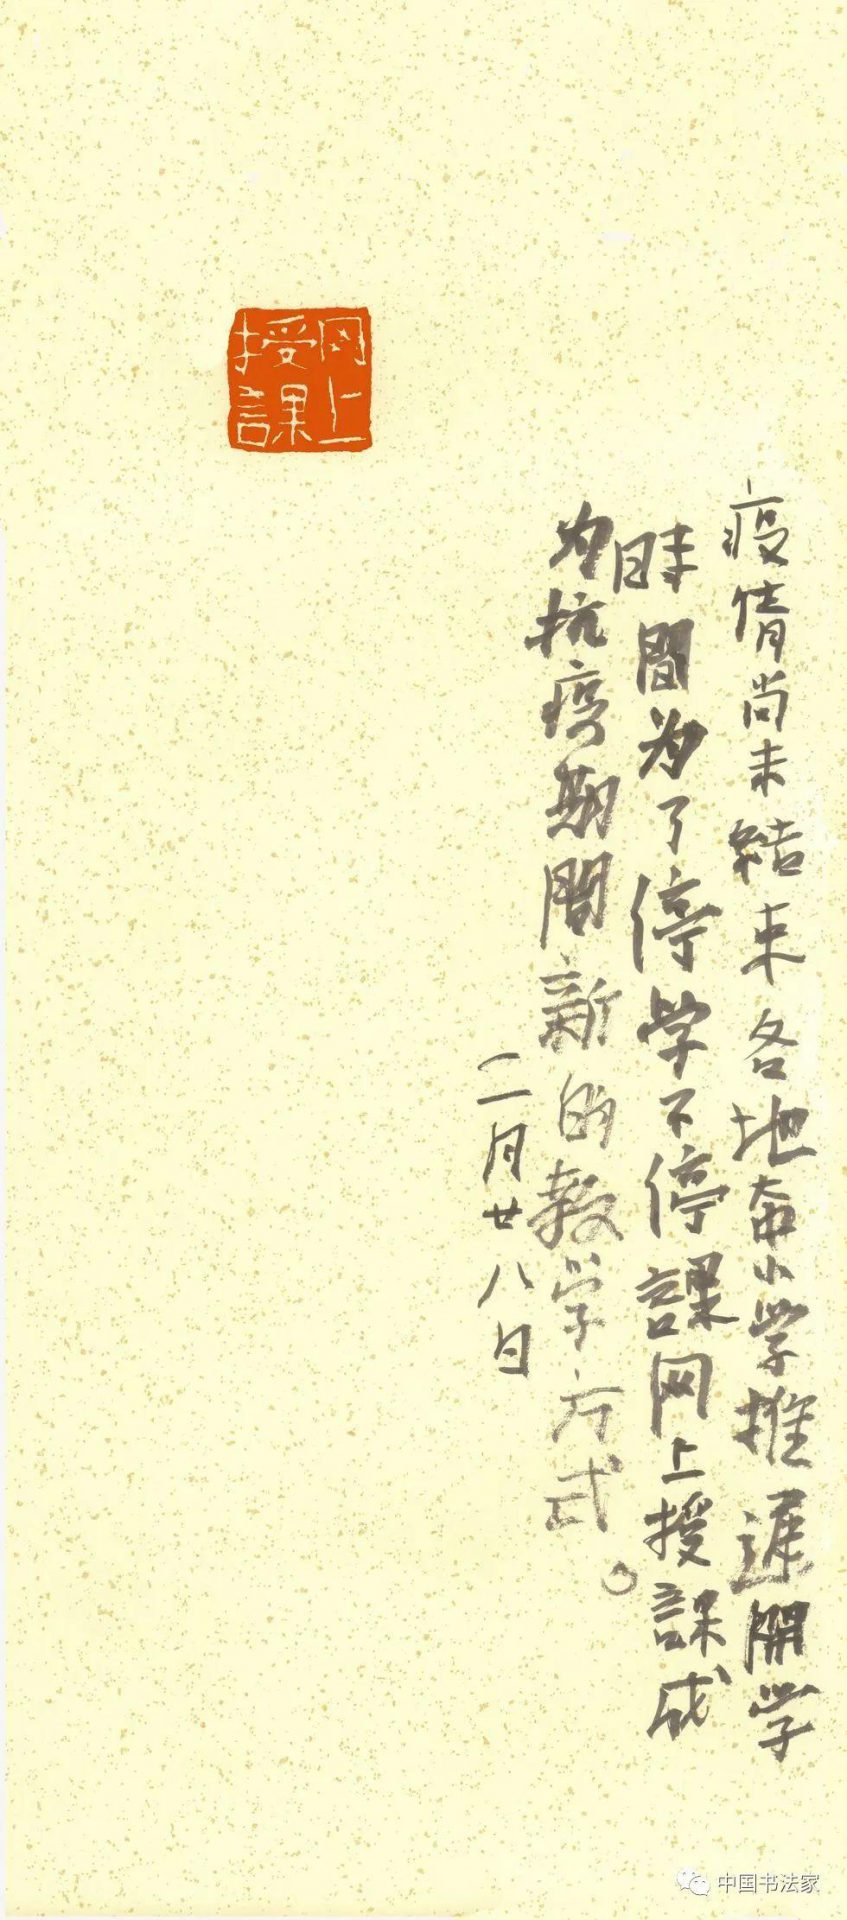 疫情尚未結束各地大中小学推遲開学
時間为了停学不停課网上授課成
为抗疫期間新的教学方式。
二月廿八日
网上
授課
中国书法家